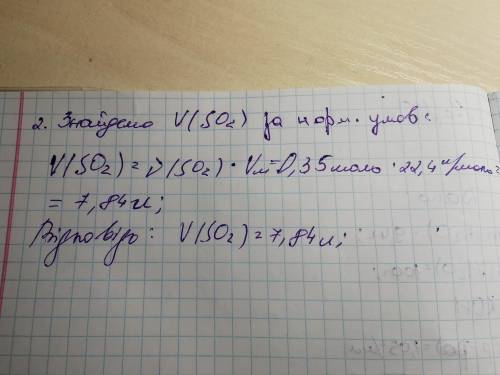 2. Знайдемо V(SO₂) за норм. умов:
V(SO₂) = ν(SO₂) · Vм = 0,35 моль · 22,4 л/моль =
= 7,84 л;
Відповідь: V(SO₂) = 7,84 л;